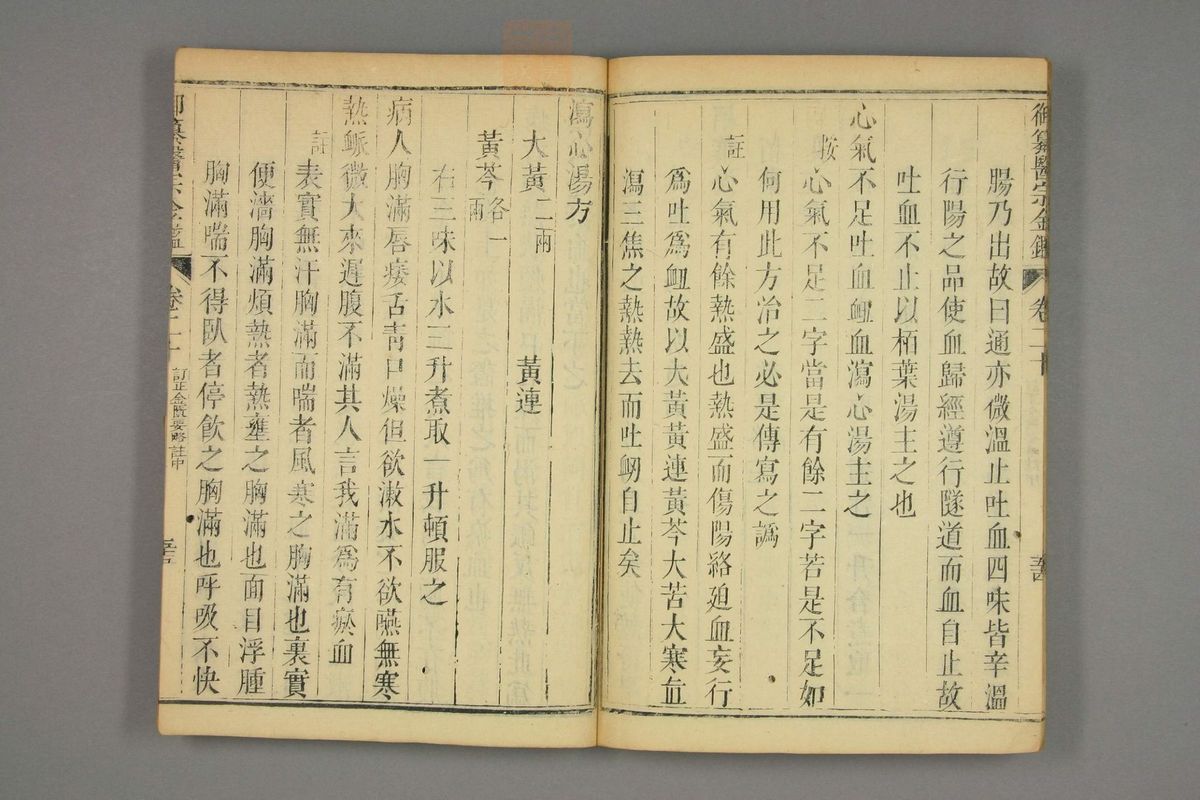 御纂醫宗金鑑 卷二十
腸乃出故曰通亦微溫止吐血四味皆辛溫
行陽之品使血歸經遵行隧道而血自止故
吐血不止以栢葉湯主之也
心氣不足吐血衄血瀉心湯主之
按 心氣不足二字當是有餘二字若是不足如
何用此方治之必是傳寫之譌
註 心氣有餘熱盛也熱盛而傷陽絡迫血妄行
爲吐爲衄故以大黃黃連黃芩大苦大寒直
瀉三焦之熱熱去而吐衄自止矣
瀉心湯方
大黃二兩 黃連
黃芩各一兩
右三味以水三升煮取一升頓服之
病人胸滿唇痿舌青口燥但欲漱水不欲嚥無寒
熱脈微大來遲腹不滿其人言我滿爲有瘀血
註 表實無汗胸滿而喘者風寒之胸滿也裏實
便濇胸滿煩熱者熱壅之胸滿也面目浮腫
胸滿喘不得臥者停飲之胸滿也呼吸不快
御纂醫宗金鑑 卷二十 訂正金匱要略註中